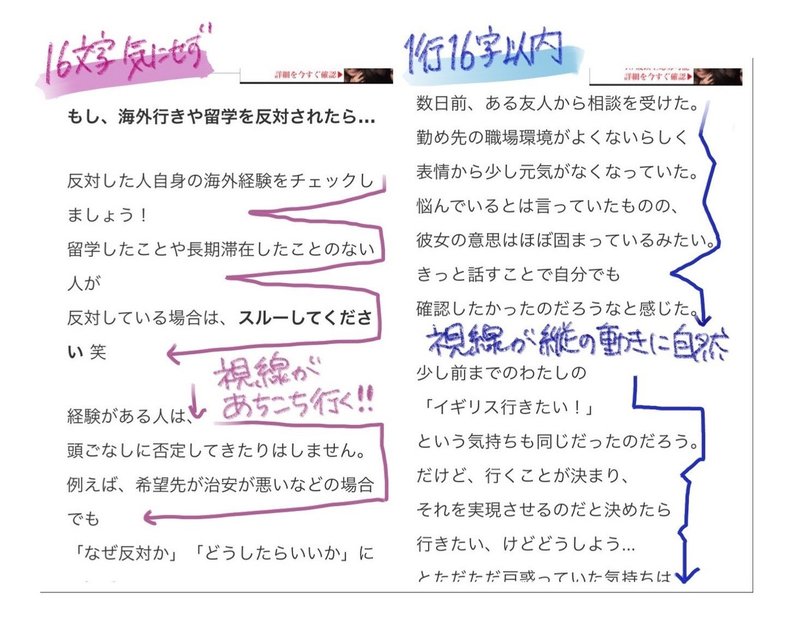 16文字気にせず
詳細を今すぐ確認▶
もし、海外行きや留学を反対されたら…
反対した人自身の海外経験をチェックし
ましょう！
留学したことや長期滞在したことのない
人が
反対している場合は、スルーしてくださ
い 笑
視線が
あちこち行く!!
経験がある人は、
頭ごなしに否定してきたりはしません。
例えば、希望先が治安が悪いなどの場合
でも
「なぜ反対か」「どうしたらいいか」に
1行16字以内
詳細を今すぐ確認▶
数日前、ある友人から相談を受けた。
勤め先の職場環境がよくないらしく
表情から少し元気がなくなっていた。
悩んでいるとは言っていたものの、
彼女の意思はほぼ固まっているみたい。
きっと話すことで自分でも
確認したかったのだろうなと感じた。
視線が縦の動きに自然
少し前までのわたしの
「イギリス行きたい！」
という気持ちも同じだったのだろう。
だけど、行くことが決まり、
それを実現させるのだと決めたら
行きたい、けどどうしよう…
とただただ戸惑っていた気持ちは